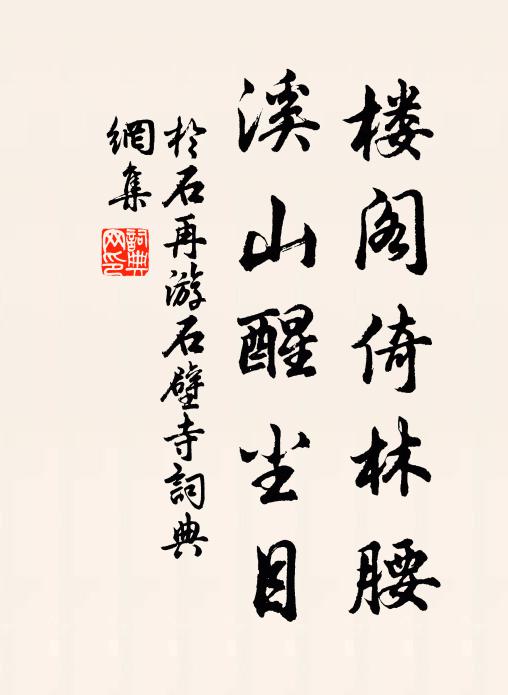 楼阁倚林腰
溪山醒尘目
於石再游石壁寺词典
網集
詞典网印